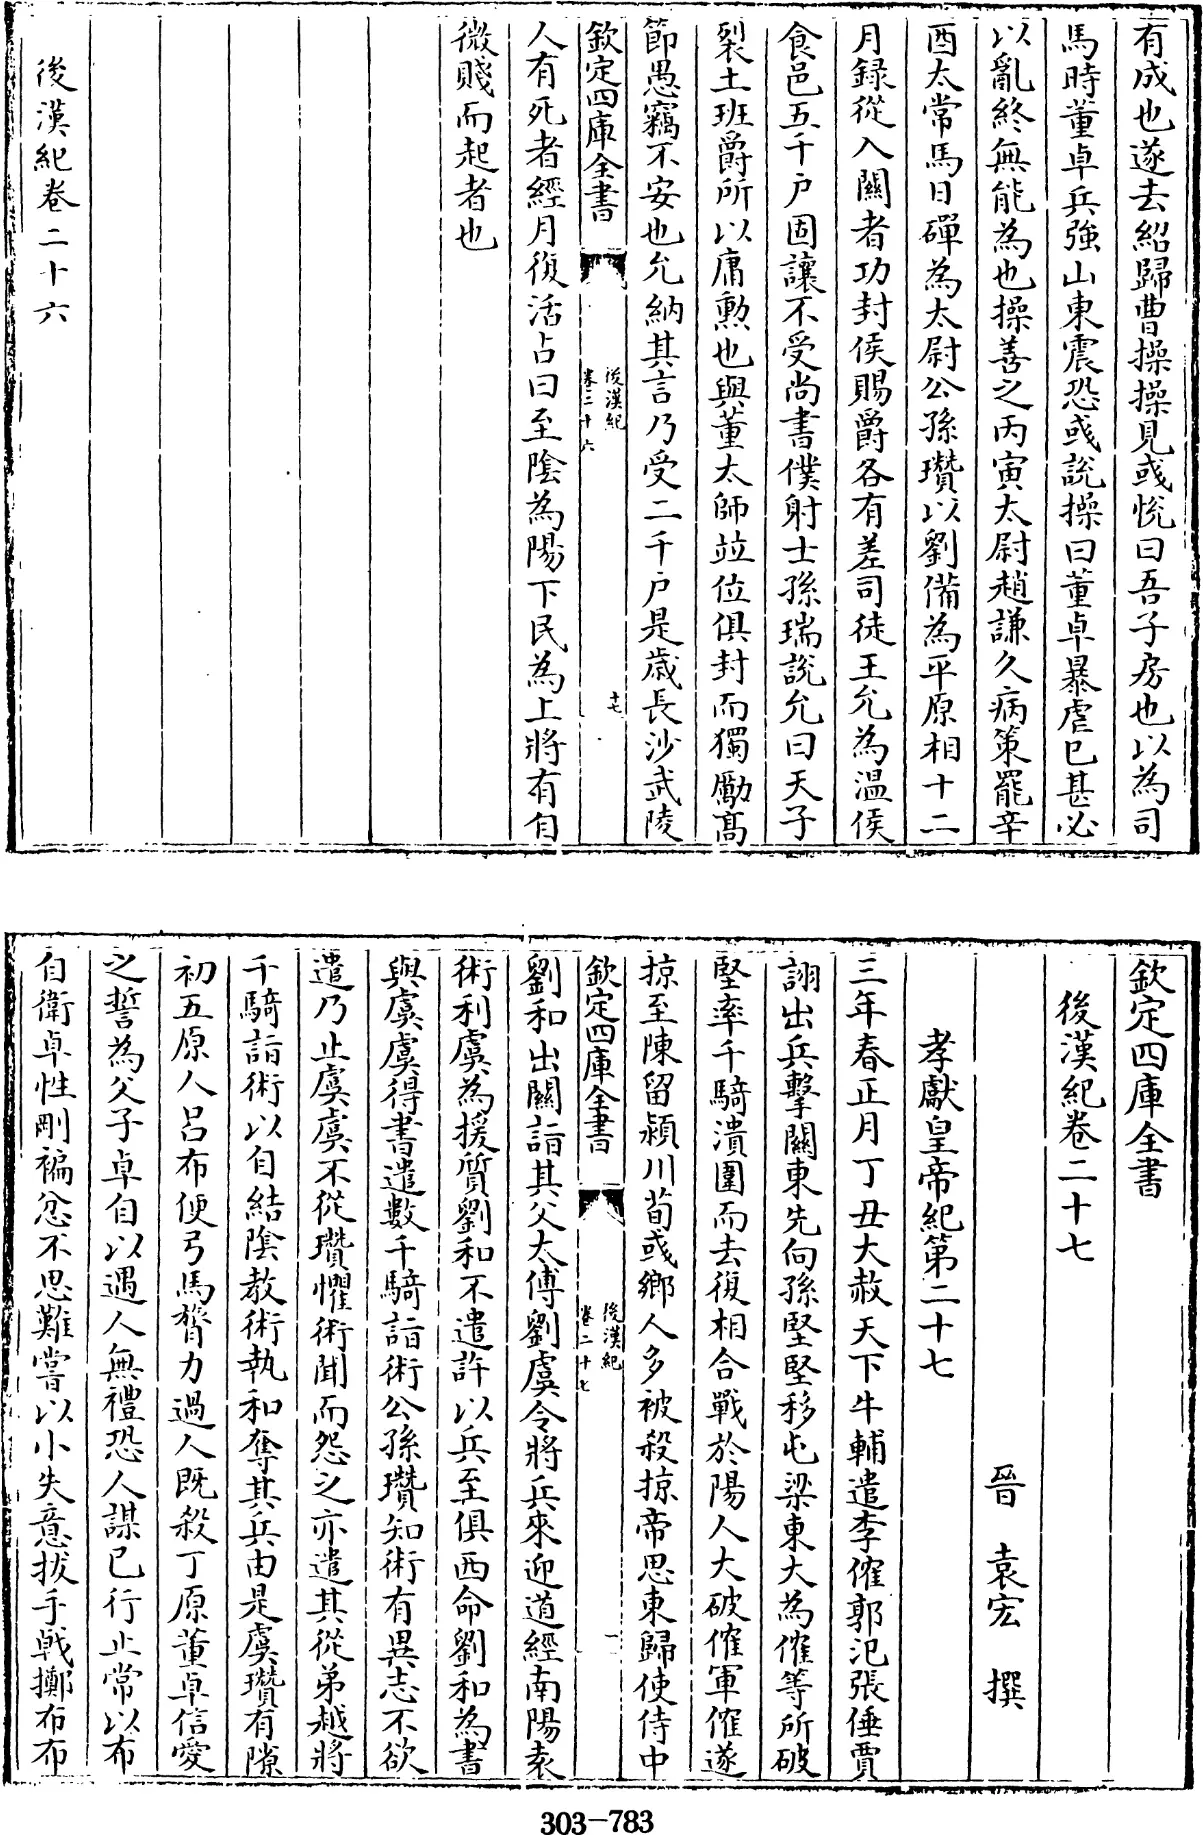 有成也遂去紹歸曹操操見彧悅曰吾子房也以為司
馬時董卓兵強山東震恐彧說操曰董卓暴虐已甚必
以亂終無能為也操善之丙寅太尉趙謙久病策罷辛
酉太常馬日磾為太尉公孫瓚以劉備為平原相十二
月録從入關者功封侯賜爵各有差司徒王允為温侯
食邑五千户固讓不受尚書僕射士孫瑞說允曰天子
裂土班爵所以庸勲也與董太師竝位俱封而獨勵髙
節愚竊不安也允納其言乃受二千户是歲長沙武陵
欽定四庫全書
後漢紀
卷二十六
十七
人有死者經月復活占曰至陰為陽下民為上將有自
微賤而起者也
後漢紀卷二十六
欽定四庫全書
後漢紀卷二十七
晉 袁宏 撰
孝獻皇帝紀第二十七
三年春正月丁丑大赦天下牛輔遣李傕郭汜張倕賈
詡出兵擊關東先向孫堅堅移屯梁東大為傕等所破
堅率千騎潰圍而去復相合戰於陽人大破傕軍傕遂
掠至陳留潁川荀彧鄉人多被殺掠帝思東歸使侍中
欽定四庫全書
後漢紀
卷二十七
一
劉和出關詣其父太傅劉虞令將兵來迎道經南陽袁
術利虞為援質劉和不遣許以兵至俱西命劉和為書
與虞虞得書遣數千騎詣術公孫瓚知術有異志不欲
遣乃止虞虞不從瓚懼術聞而怨之亦遣其從弟越將
千騎詣術以自結陰教術執和奪其兵由是虞瓚有隙
初五原人呂布便弓馬膂力過人既殺丁原董卓信愛
之誓為父子卓自以遇人無禮恐人謀己行止常以布
自衛卓性剛褊忿不思難嘗以小失意拔手戟擲布布
303-783